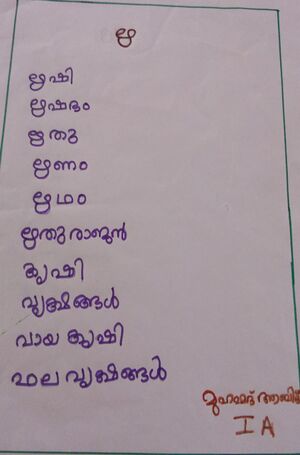 ഋ
ഋഷി
ഋഷഭം
ഋതു
ഋണം
ഋഥം
ഋതുരാജൻ
കൃഷി
വൃക്ഷങ്ങൾ
വായ കൃഷി
ഫല വൃക്ഷങ്ങൾ
മുഹമ്മദ്
I A